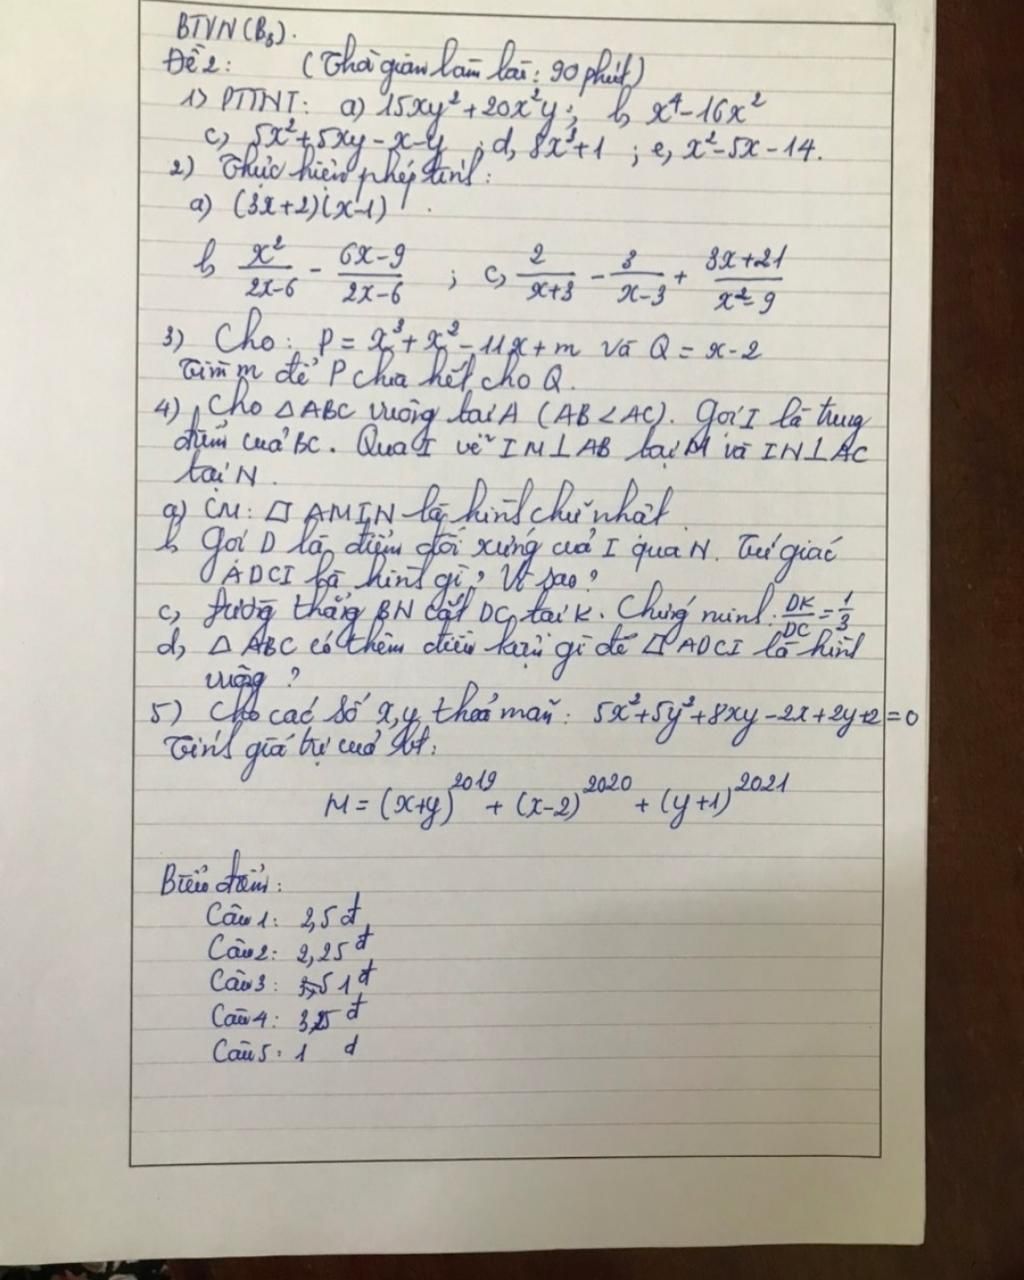 BTVN (B8).
Đề 2: (Thời gian làm bài: 90 phút)
1) PTTNT: a) 15xy² + 20x²y ; b, x⁴ - 16x²
c, 5x² + 5xy - x - y ; d, 8x³ + 1 ; e, x² - 5x - 14.
2) Thực hiện phép tính:
a) (3x+2)(x-1)
b, x²/(2x-6) - (6x-9)/(2x-6) ; c, 2/(x+3) - 3/(x-3) + (3x+21)/(x²-9)
3) Cho: P = x³ + x² - 11x + m và Q = x - 2
Tìm m để P chia hết cho Q.
4) Cho △ABC vuông tại A (AB < AC). Gọi I là trung
điểm của BC. Qua I vẽ IM ⊥ AB tại M và IN ⊥ AC
tại N.
a) CM: ▱ AMIN là hình chữ nhật
b, Gọi D là điểm đối xứng của I qua N. Tứ giác
ADCI là hình gì? Vì sao?
c, Đường thẳng BN cắt DC tại K. Chứng minh: DK/DC = 1/3
d, △ ABC có thêm điều kiện gì để ▱ ADCI là hình
vuông ?
5) Cho các số x, y thoả mãn: 5x² + 5y² + 8xy - 2x + 2y + 2 = 0
Tính giá trị của bt:
M = (x+y)²⁰¹⁹ + (x-2)²⁰²⁰ + (y+1)²⁰²¹
Biểu điểm:
Câu 1: 2,5 đ
Câu 2: 2,25 đ
Câu 3: 1 đ
Câu 4: 3,25 đ
Câu 5: 1 đ